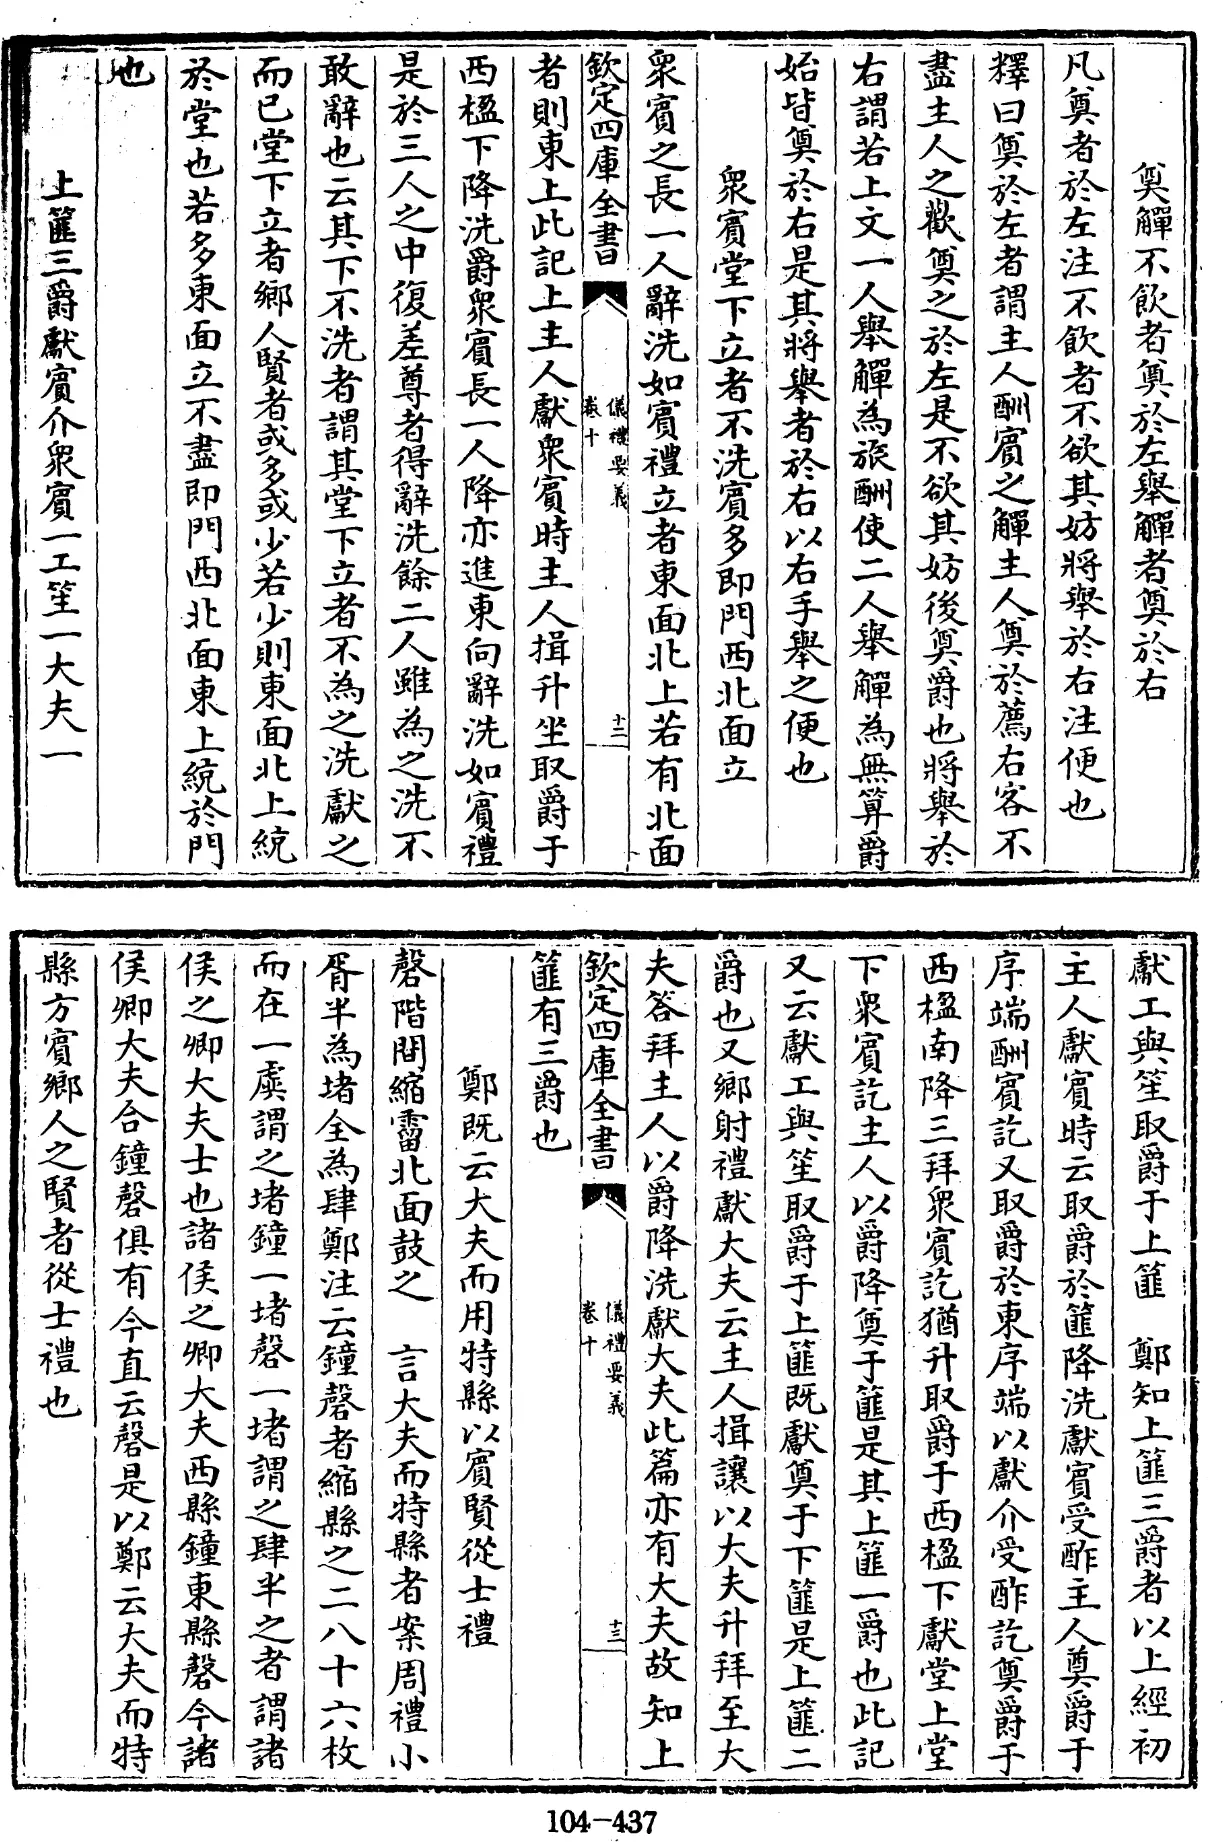 奠觶不飲者奠於左舉觶者奠於右
凡奠者於左注不飲者不欲其妨將舉於右注便也
釋曰奠於左者謂主人酬賓之觶主人奠於薦右客不
盡主人之歡奠之於左是不欲其妨後奠爵也將舉於
右謂若上文一人舉觶為旅酬使二人舉觶為無算爵
始皆奠於右是其將舉者於右以右手舉之便也
衆賓堂下立者不洗賓多即門西北面立
衆賓之長一人辭洗如賓禮立者東面北上若有北面
欽定四庫全書
儀禮要義
卷十
十二
者則東上此記上主人獻衆賓時主人揖升坐取爵于
西楹下降洗爵衆賓長一人降亦進東向辭洗如賓禮
是於三人之中復差尊者得辭洗餘二人雖為之洗不
敢辭也云其下不洗者謂其堂下立者不為之洗獻之
而已堂下立者鄉人賢者或多或少若少則東面北上統
於堂也若多東面立不盡即門西北面東上統於門
也
上篚三爵獻賓介衆賓一工笙一大夫一
獻工與笙取爵于上篚　鄭知上篚三爵者以上經初
主人獻賓時云取爵於篚降洗獻賓受酢主人奠爵于
序端酬賓訖又取爵於東序端以獻介受酢訖奠爵于
西楹南降三拜衆賓訖猶升取爵于西楹下獻堂上堂
下衆賓訖主人以爵降奠于篚是其上篚一爵也此記
又云獻工與笙取爵于上篚既獻奠于下篚是上篚二
爵也又鄉射禮獻大夫云主人揖讓以大夫升拜至大
夫答拜主人以爵降洗獻大夫此篇亦有大夫故知上
欽定四庫全書
儀禮要義
卷十
十三
篚有三爵也
鄭既云大夫而用特縣以賓賢從士禮
磬階間縮霤北面鼓之　言大夫而特縣者案周禮小
胥半為堵全為肆鄭注云鐘磬者縮縣之二八十六枚
而在一虡謂之堵鐘一堵磬一堵謂之肆半之者謂諸
侯之卿大夫士也諸侯之卿大夫西縣鐘東縣磬今諸
侯卿大夫合鐘磬俱有今直云磬是以鄭云大夫而特
縣方賓鄉人之賢者從士禮也
104-437